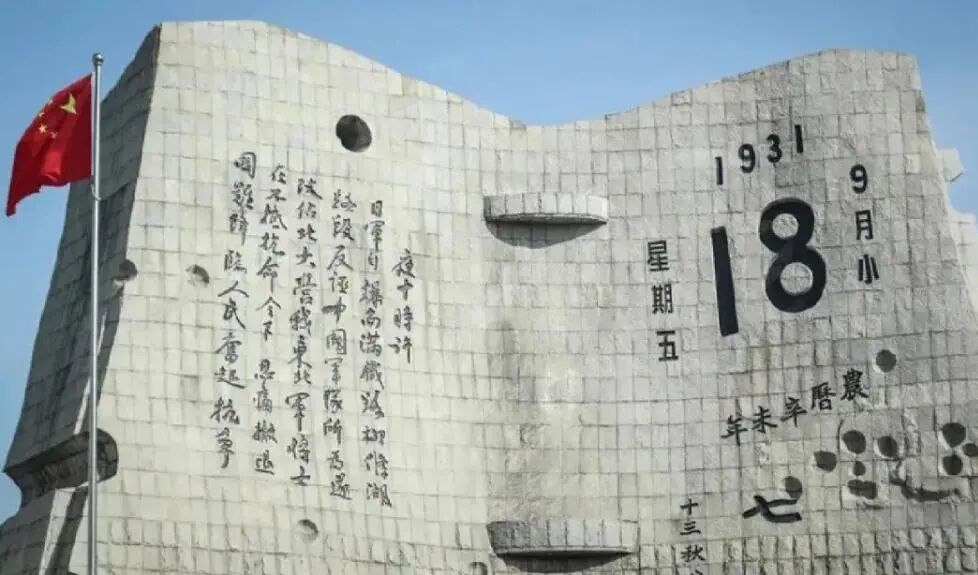 夜十時許
日軍自爆南滿鐵路柳條湖
路段反誣中國軍隊所為遂
攻佔北大營我東北軍將士
在不抵抗命令下忍痛撤退
國難降臨人民奮起抗爭
1931
9月小
18
星期五
農曆辛未年
七
十三秋